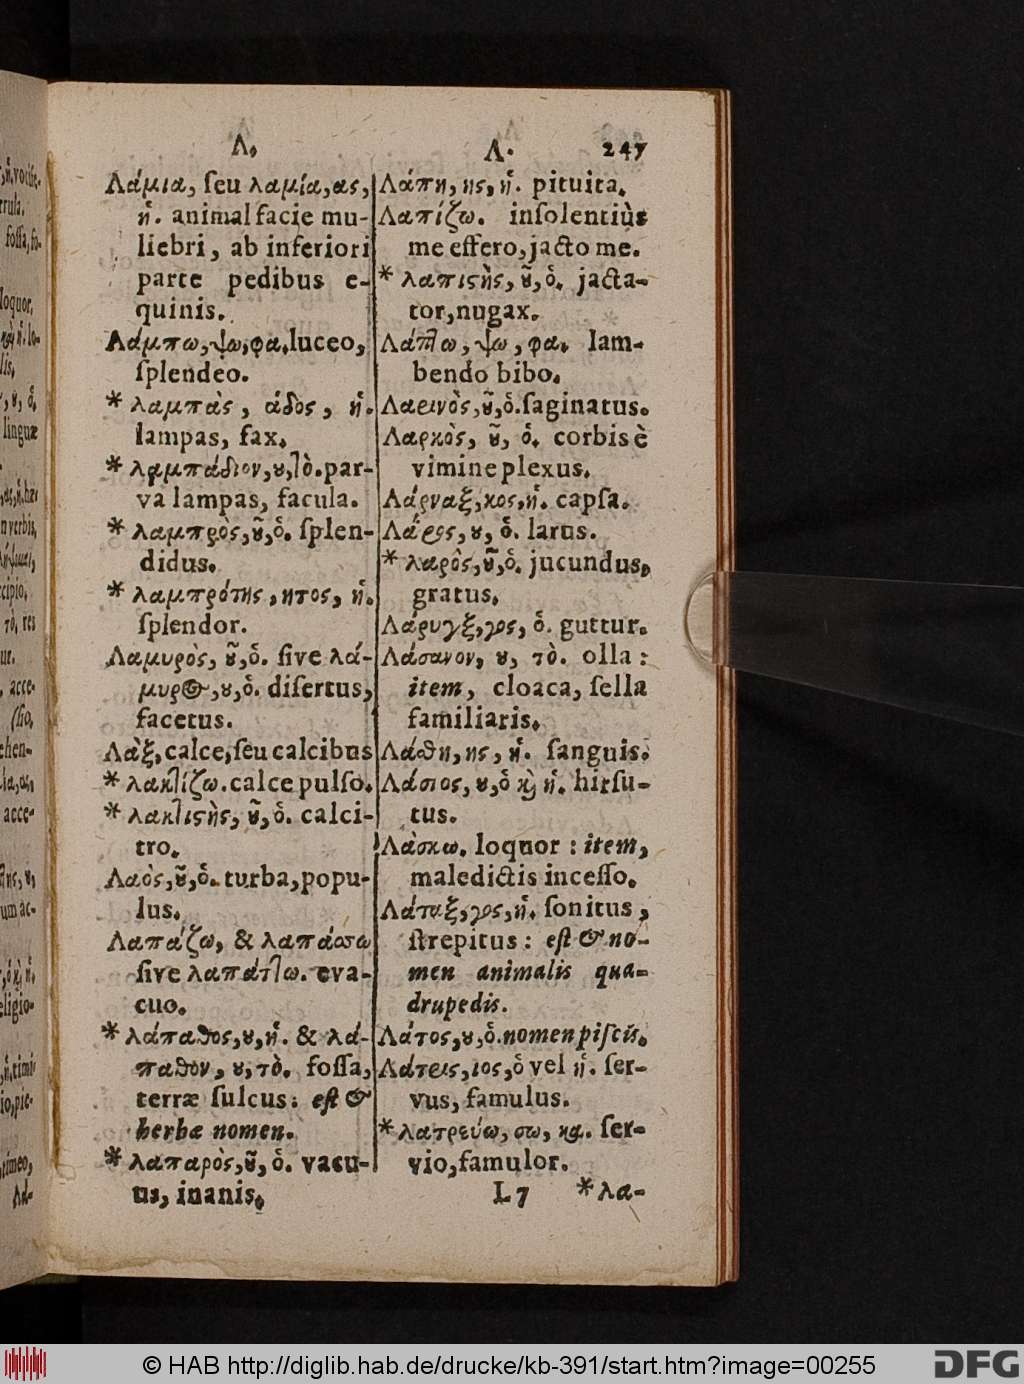 Λ.
Λάμια, ſeu λαμία, ας,
ἡ. animal facie mu-
liebri, ab inferiori
parte pedibus e-
quinis.
Λάμπω, ψω, φα. luceo,
ſplendeo.
* λαμπὰς, άδος, ἡ.
lampas, fax.
* λαμπάδιον, ου, τὸ. par-
va lampas, facula.
* λαμπρὸς, οῦ, ὁ. ſplen-
didus.
* λαμπρότης, ητος, ἡ.
ſplendor.
Λαμυρὸς, οῦ, ὁ. ſive λά-
μυρος, ου, ὁ. diſertus,
facetus.
Λὰξ, calce, ſeu calcibus
* λακτίζω. calce pulſo.
* λακτιϛὴς, οῦ, ὁ. calci-
tro.
Λαὸς, οῦ, ὁ. turba, popu-
lus.
Λαπάζω, & λαπάσσω
ſive λαπάττω. eva-
cuo.
* λάπαθος, ου, ἡ. & λά-
παθον, ου, τὸ. foſſa,
terræ ſulcus: eſt &
herbæ nomen.
* λαπαρὸς, οῦ, ὁ. vacu-
us, inanis.
Λ. 247
Λάπη, ης, ἡ. pituita.
Λαπίζω. inſolentiùs
me effero, jacto me.
* λαπιϛὴς, οῦ, ὁ. jacta-
tor, nugax.
Λάπτω, ψω, φα. lam-
bendo bibo.
Λαρινὸς, οῦ, ὁ. ſaginatus.
Λαρκὸς, οῦ, ὁ. corbis è
vimine plexus.
Λάρναξ, κος, ἡ. capſa.
Λάρος, ου, ὁ. larus.
* λαρὸς, οῦ, ὁ. jucundus,
gratus.
Λάρυγξ, γος, ὁ. guttur.
Λάσανον, ου, τὸ. olla:
item, cloaca, ſella
familiaris.
Λάθη, ης, ἡ. ſanguis.
Λάσιος, ου, ὁ ϗ ἡ. hirſu-
tus.
Λάσκω. loquor: item,
maledictis inceſſo.
Λάταξ, γος, ἡ. ſonitus,
ſtrepitus: eſt & no-
men animalis qua-
drupedis.
Λάτος, ου, ὁ. nomen piſcis.
Λάτρις, ιος, ὁ vel ἡ. ſer-
vus, famulus.
* λατρεύω, σω, κα. ſer-
vio, famulor.
L 7 * λα-
© HAB http://diglib.hab.de/drucke/kb-391/start.htm?image=00255
DFG